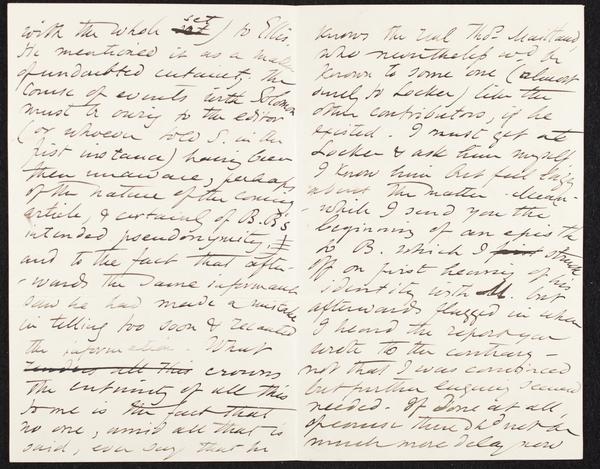 with the whole set set) to Ellis.
He mentioned it as a matter
of undoubted certainty. The
course of events with Solomon
must be owing to the editor
(or whoever told S. in the
first instance) having been
then unaware, perhaps,
of the nature of the coming
article, & certainly of B.B's
intended pseudonymity,
and to the fact that after-
-wards the same informant
saw he had made a mistake
in telling too soon & recanted
the information. What
crowns
the entirety of all this
to me is the fact that
no one, amid all that is
said, ever says that he
knows the real Thos. Maitland
who nevertheless wd be
known to some one (almost
surely to Locker) like the
other contributors, if he
existed. I must get at
Locker & ask him myself.
I know him but feel
about the matter. Mean-
-while I send you the
beginning of an epistle
to B. which I struck
off on first hearing of his
identity with M. but
afterwards flagged in when
I heard the report you
wrote to the contrary –
not that I was convinced
but further enquiry seemed
needed. If done at all,
of course there shd not be
much more delay now